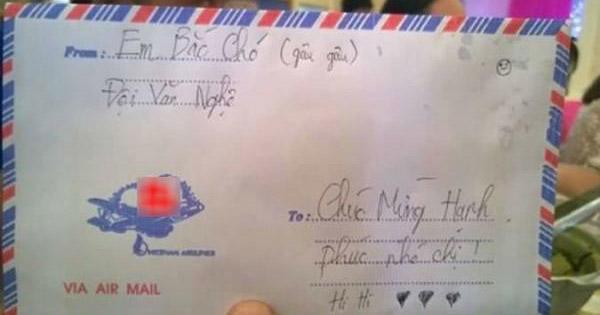 From: Em Bắc Chó (gâu gâu)
Đội Văn Nghệ
VIETNAM AIRLINES
To: Chúc Mừng Hạnh
phúc nhé chị!
Hi Hi ♥ ♥ ♥
VIA AIR MAIL